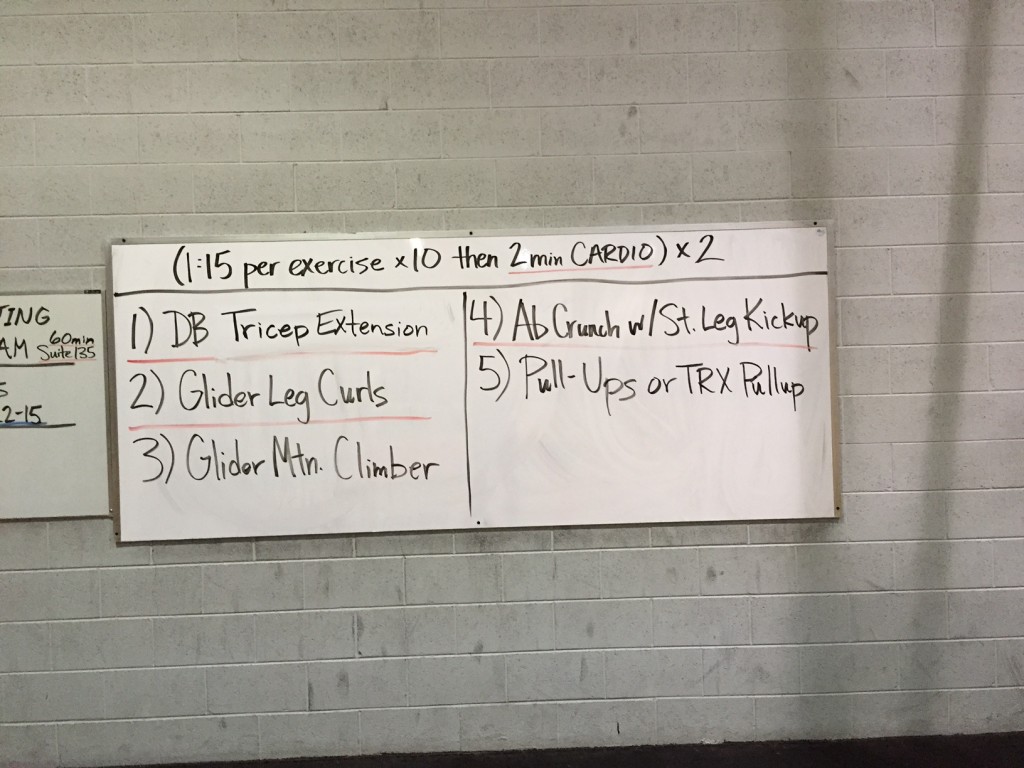 (1:15 per exercise x10 then 2 min CARDIO) x 2
1) DB Tricep Extension
2) Glider Leg Curls
3) Glider Mtn. Climber
4) Ab Crunch w/ St. Leg Kickup
5) Pull-Ups or TRX Pullup
TING
AM 60min
Suite 135
S
2-15